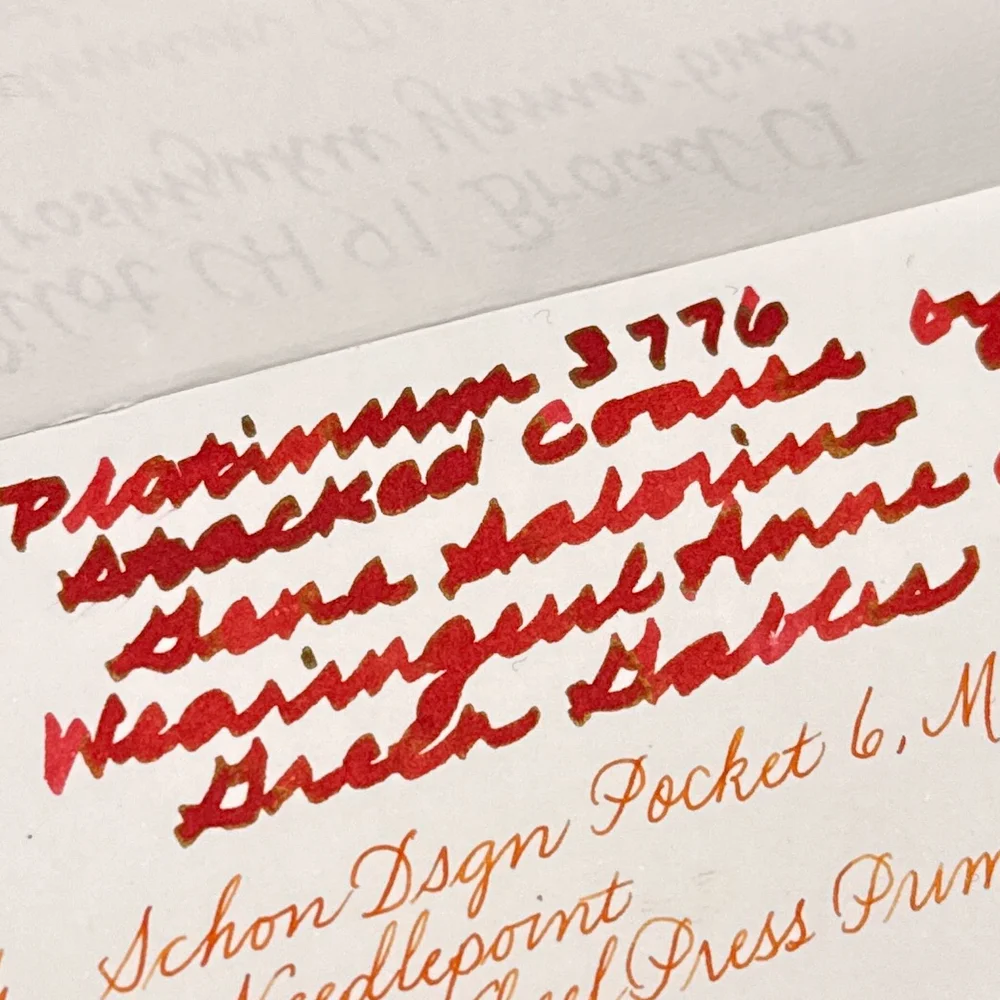 Platinum 3776
Stacked Coarse by
Gena Salorino
Wearingeul Anne
Green Gables
Schon Dsgn Pocket 6, M
Needlepoint
Press Pum